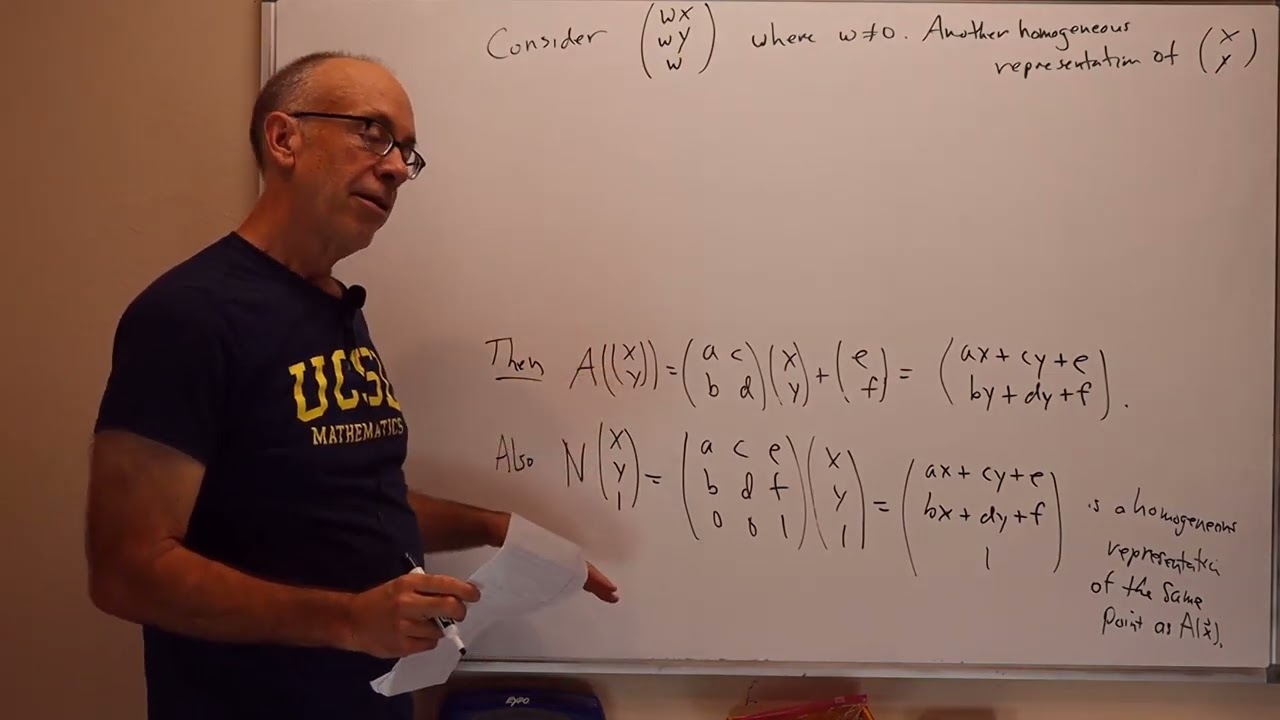 Consider (wx wy w) where w≠0. Another homogeneous
representation of (x y)
Then A((x y)) = (a c b d)(x y) + (e f) = (ax + cy + e by + dy + f).
Also N(x y 1) = (a c e b d f 0 0 1)(x y 1) = (ax + cy + e bx + dy + f 1) is a homogeneous
representati
of the same
point as A(x⃗).
UCS
MATHEMATICS
EXPO